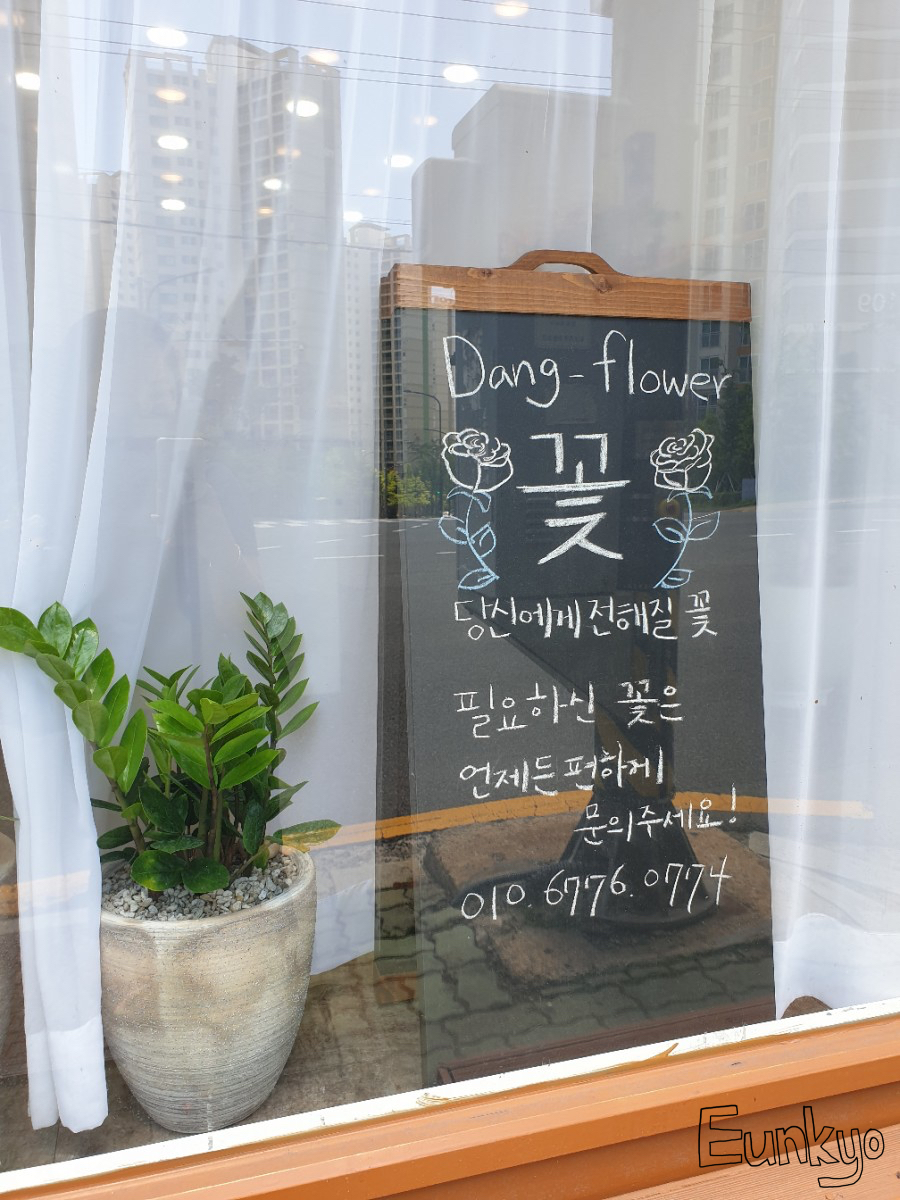 Dang-flower
꽃
당신에게 전해질 꽃
필요하신 꽃은
언제든 편하게
문의주세요!
010.6776.0774
Eunkyo